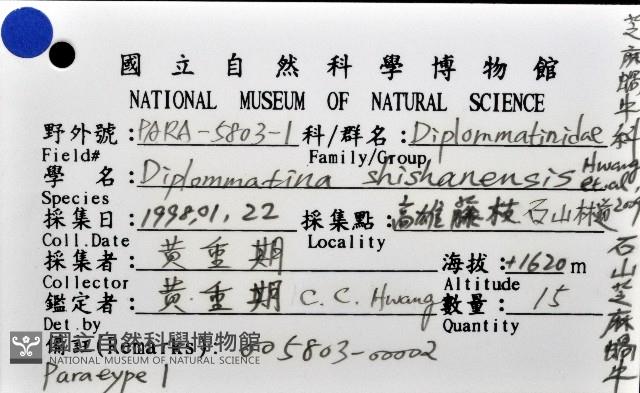 國立自然科學博物館
NATIONAL MUSEUM OF NATURAL SCIENCE
野外號：PARA-5803-1 科/群名：Diplommatinidae
Field# Family/Group
學名：Diplommatina shishanensis Hwang et al 2009
Species
採集日：1998,01,22 採集點：高雄藤枝石山林道
Coll.Date Locality
採集者：黃重期 海拔：+1620m
Collector Altitude
鑑定者：黃重期 C.C. Hwang 數量：15
Det.by Quantity
備註(Remarks)：005803-00002
Paraeype 1
國立自然科學博物館
NATIONAL MUSEUM OF NATURAL SCIENCE
芝麻蝸牛科
石山芝麻蝸牛